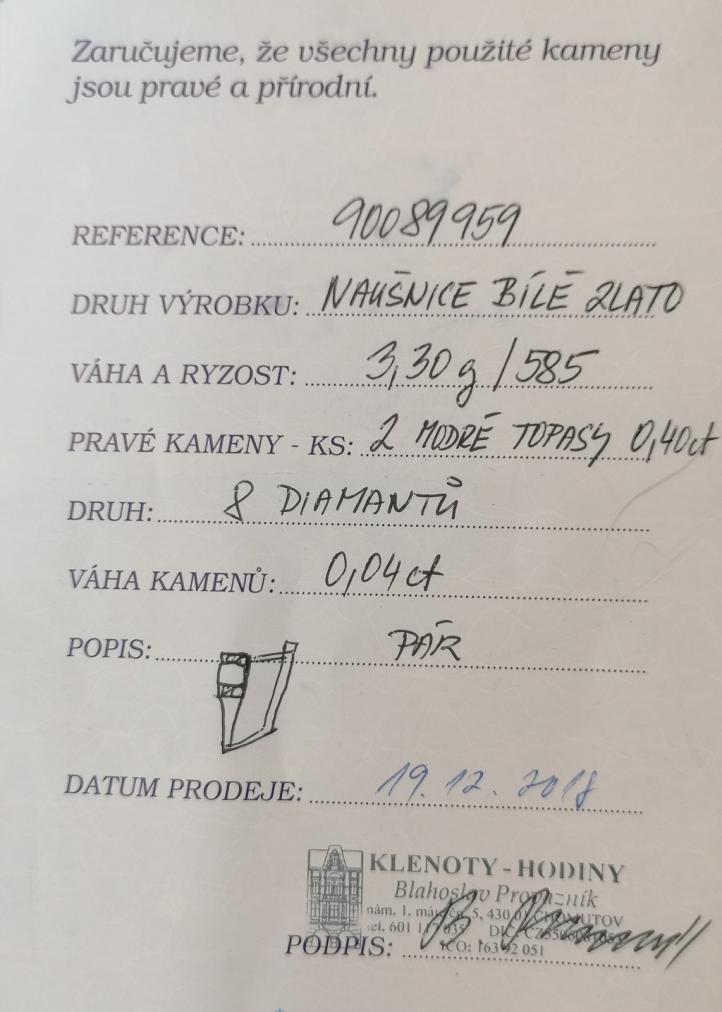 Zaručujeme, že všechny použité kameny
jsou pravé a přírodní.
REFERENCE: 90089959
DRUH VÝROBKU: NAUŠNICE BÍLÉ ZLATO
VÁHA A RYZOST: 3,30 g / 585
PRAVÉ KAMENY - KS: 2 MODRÉ TOPASY 0,40ct
DRUH: 8 DIAMANTŮ
VÁHA KAMENŮ: 0,04 ct
POPIS: PÁR
DATUM PRODEJE: 19. 12. 2018
KLENOTY - HODINY
Blahoslav
nám. 1. 5, 430 01 CHOMUTOV
tel. 601 DIČ:
IČO: 163 92 051
PODPIS: